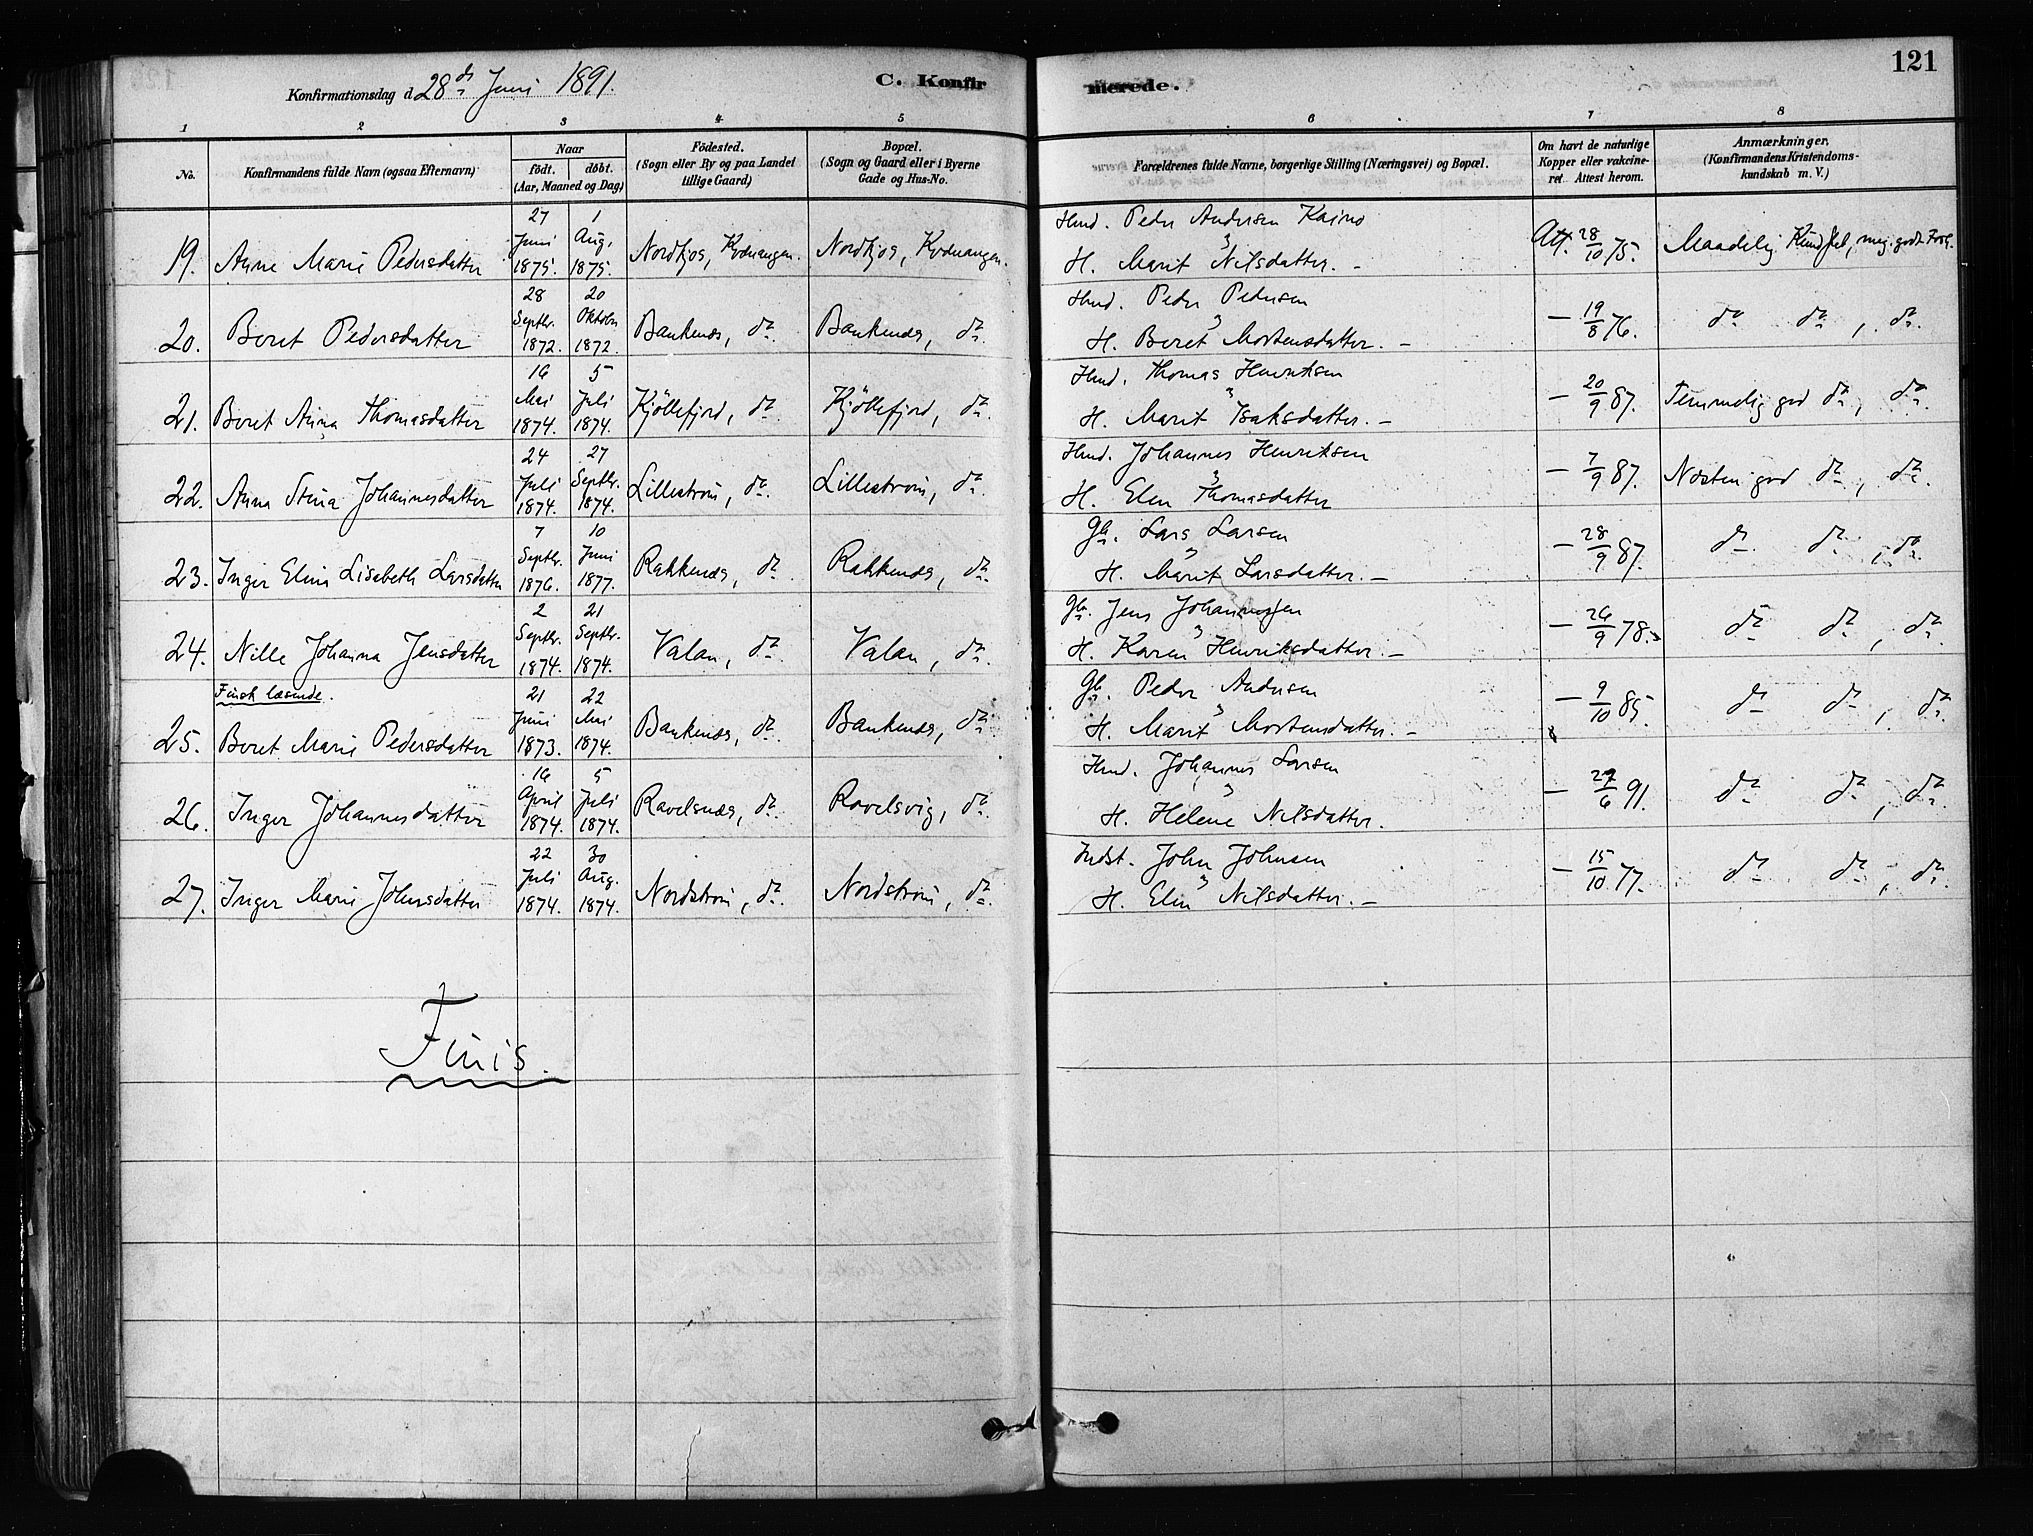 121
Konfirmationsdag d. 28de Juni 1891.
C. Konfirmerede.
1 2 3 4 5 6 7 8
No. Konfirmandens fulde Navn (ogsaa Efternavn) Naar født. døbt. (Aar, Maaned og Dag) Fødested. (Sogn eller By og paa Landet tillige Gaard) Bopæl. (Sogn og Gaard eller i Byerne Gade og Hus-No. Forældrenes fulde Navne, borgerlige Stilling (Næringsvei) og Bopæl. Om havt de naturlige Kopper eller vakcineret. Attest herom. Anmærkninger. (Konfirmandens Kristendomskundskab m. V.)
19. Anne Marie Pedersdatter 27 Juni 1875. 1 Aug. 1875. Nordkjos, Kvænangen. Nordkjos, Kvænangen. Hmd. Peder Andersen Kaino H. Marit Nilsdatter. - Att. 28/10 75. Maadelig Kundsk., meg. godt Forh.
20. Beret Pedersdatter 28 Septbr. 1872. 20 Oktober 1872. Bankenæs, do. Bankenæs, do. Hmd. Peder Pedersen H. Beret Mortensdatter. - - 19/8 76. do do, do.
21. Beret Anna Thomasdatter 16 Mai 1874. 5 Juli 1874. Kjøllefjord, do. Kjøllefjord, do. Hmd. Thomas Henriksen H. Marit Isaksdatter. - - 20/9 87. Temmelig god do, do.
22. Anna Stina Johannesdatter 24 Juli 1874. 27 Septbr. 1874. Lillestrøm, do. Lillestrøm, do. Hmd. Johannes Henriksen H. Elen Thomasdatter - 7/9 87. Næsten god do, do.
23. Inger Elen Lisabeth Larsdatter 7 Septbr. 1876. 10 Juni 1877. Rakkenæs, do. Rakkenæs, do. Gbr. Lars Larsen H. Marit Larsdatter. - - 28/9 87. do do, do
24. Nille Johanna Jensdatter 2 Septbr. 1874. 21 Septbr. 1874. Valan, do. Valan, do. Gbr. Jens Johannesen H. Karen Henriksdatter. - - 26/9 78. do do, do
Finsk læsende.
25. Beret Marie Pedersdatter 21 Juni 1873. 22 Mai 1874. Bankenæs, do. Bankenæs, do. Gbr. Peder Andersen H. Marit Mortensdatter. - - 9/10 85. do do, do.
26. Inger Johannesdatter 16 April 1874. 5 Juli 1874. Ravelsnæs, do. Ravelsvig, do. Hmd. Johannes Larsen H. Helene Nilsdatter. - 27/6 91. do do, do.
27. Inger Marie Johnsdatter 22 Juli 1874. 30 Aug. 1874. Nordstrøm, do. Nordstrøm, do. Indst. John Johnsen H. Elen Nilsdatter. - - 15/10 77. do do, do.
Finis.